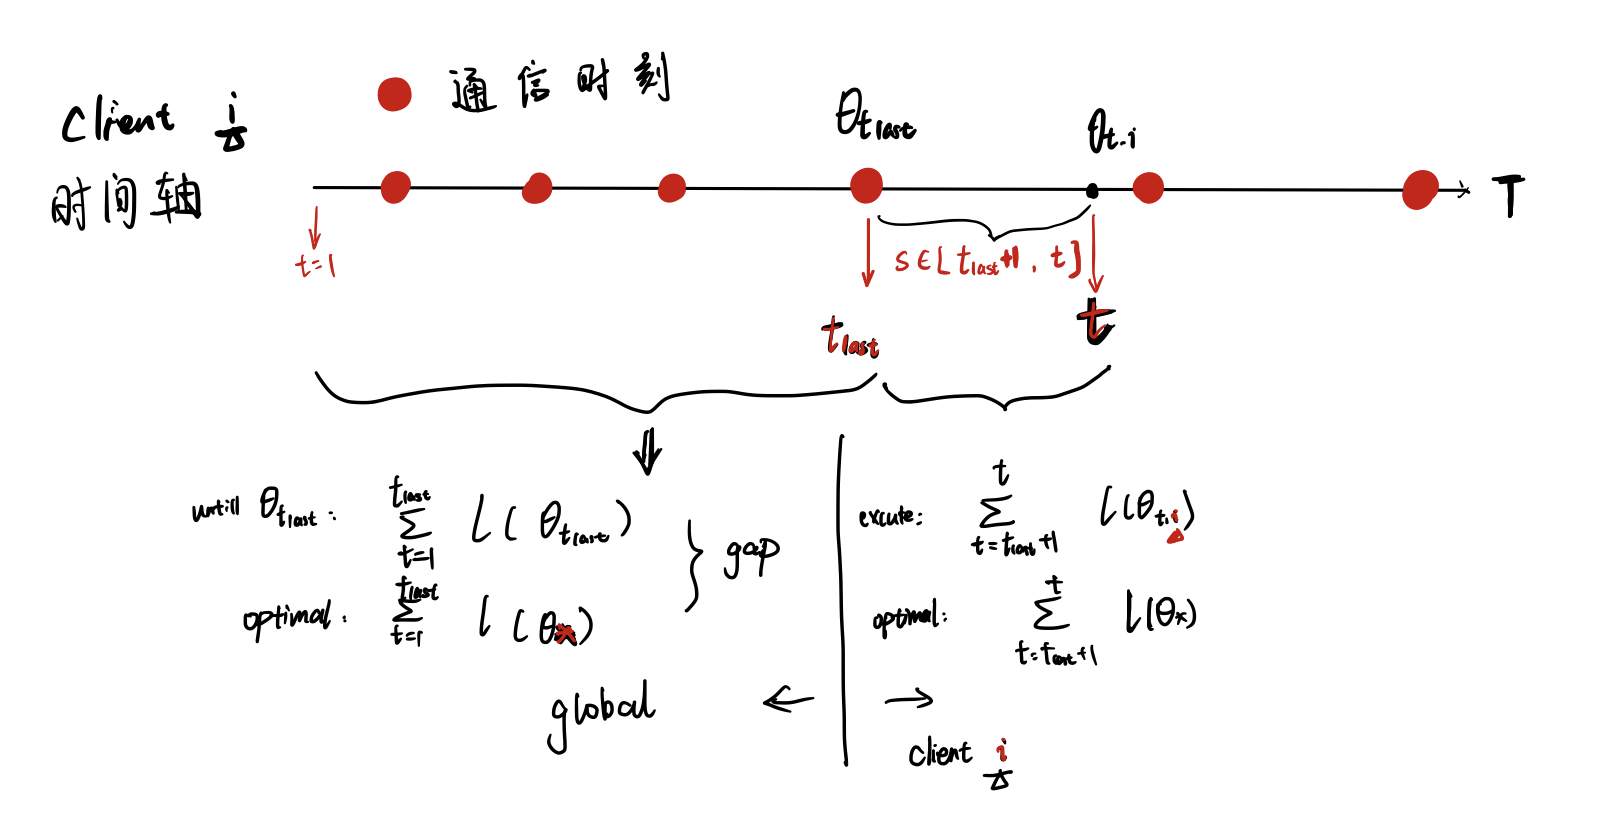 通信时刻
Client i
时间轴
θ_{t_{last}}
θ_{t,i}
T
t=1
s∈[t_{last}+1, t]
t_{last}
t
until θ_{t_{last}}: \sum_{t=1}^{t_{last}} l(θ_{t_{last}})
optimal: \sum_{t=1}^{t_{last}} l(θ_*)
} gap
global ←
excute: \sum_{t=t_{last}+1}^{t} l(θ_{t,i})
optimal: \sum_{t=t_{last}+1}^{t} l(θ_*)
→
client i